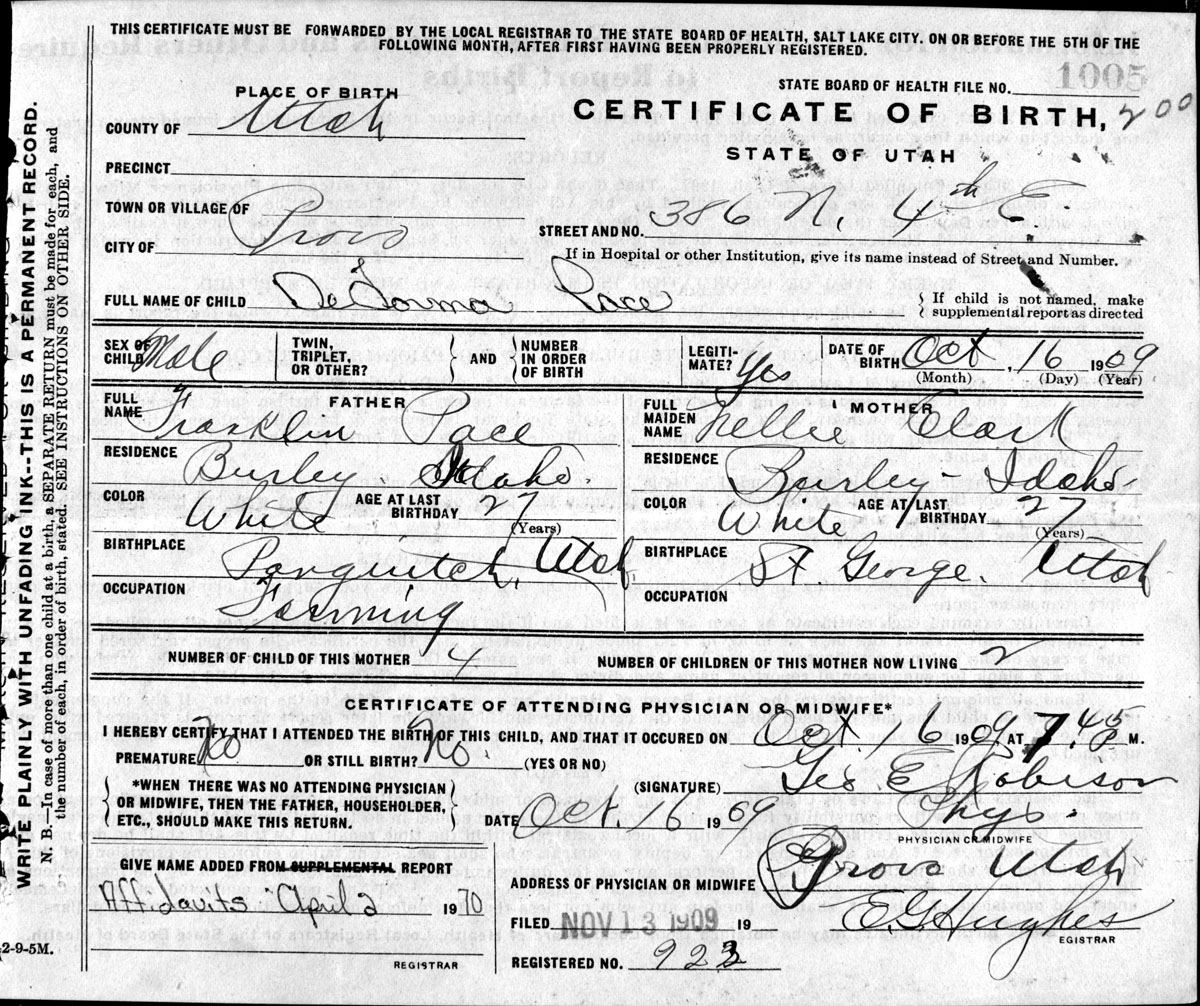 THIS CERTIFICATE MUST BE FORWARDED BY THE LOCAL REGISTRAR TO THE STATE BOARD OF HEALTH, SALT LAKE CITY. ON OR BEFORE THE 5TH OF THE
FOLLOWING MONTH, AFTER FIRST HAVING BEEN PROPERLY REGISTERED.
1005
STATE BOARD OF HEALTH FILE NO.
PLACE OF BIRTH
CERTIFICATE OF BIRTH, 200
COUNTY OF Utah
STATE OF UTAH
PRECINCT
TOWN OR VILLAGE OF
STREET AND NO. 386 N. 4th E.
CITY OF Provo
If in Hospital or other Institution, give its name instead of Street and Number.
FULL NAME OF CHILD Pace
If child is not named, make
supplemental report as directed
SEX OF CHILD Male
TWIN, TRIPLET, OR OTHER?
AND
NUMBER IN ORDER OF BIRTH
LEGITIMATE? Yes
DATE OF BIRTH Oct, 16 1909
(Month) (Day) (Year)
FATHER
FULL NAME Franklin Pace
RESIDENCE Burley Idaho.
COLOR White AGE AT LAST BIRTHDAY 27
(Years)
BIRTHPLACE Panguitch, Utah
OCCUPATION Farming
MOTHER
FULL MAIDEN NAME Nellie Clark
RESIDENCE Burley - Idaho
COLOR White AGE AT LAST BIRTHDAY 27
(Years)
BIRTHPLACE St George. Utah
OCCUPATION
NUMBER OF CHILD OF THIS MOTHER 4 NUMBER OF CHILDREN OF THIS MOTHER NOW LIVING 2
CERTIFICATE OF ATTENDING PHYSICIAN OR MIDWIFE*
I HEREBY CERTIFY THAT I ATTENDED THE BIRTH OF THIS CHILD, AND THAT IT OCCURED ON Oct. 16 1909 AT 7.45 P M.
PREMATURE No OR STILL BIRTH? No. (YES OR NO)
*WHEN THERE WAS NO ATTENDING PHYSICIAN
OR MIDWIFE, THEN THE FATHER, HOUSEHOLDER,
ETC., SHOULD MAKE THIS RETURN.
(SIGNATURE) Geo. E. Robison
DATE Oct. 16 1909 Phys.
PHYSICIAN OR MIDWIFE
GIVE NAME ADDED FROM SUPPLEMENTAL REPORT
Affidavits April 2 1970
REGISTRAR
ADDRESS OF PHYSICIAN OR MIDWIFE Provo Utah
FILED NOV 13 1909 19 E. G. Hughes
EGISTRAR
REGISTERED NO. 923
WRITE PLAINLY WITH UNFADING INK--THIS IS A PERMANENT RECORD.
N. B.—In case of more than one child at a birth, a SEPARATE RETURN must be made for each, and
the number of each, in order of birth, stated. SEE INSTRUCTIONS ON OTHER SIDE.
2-9-5M.